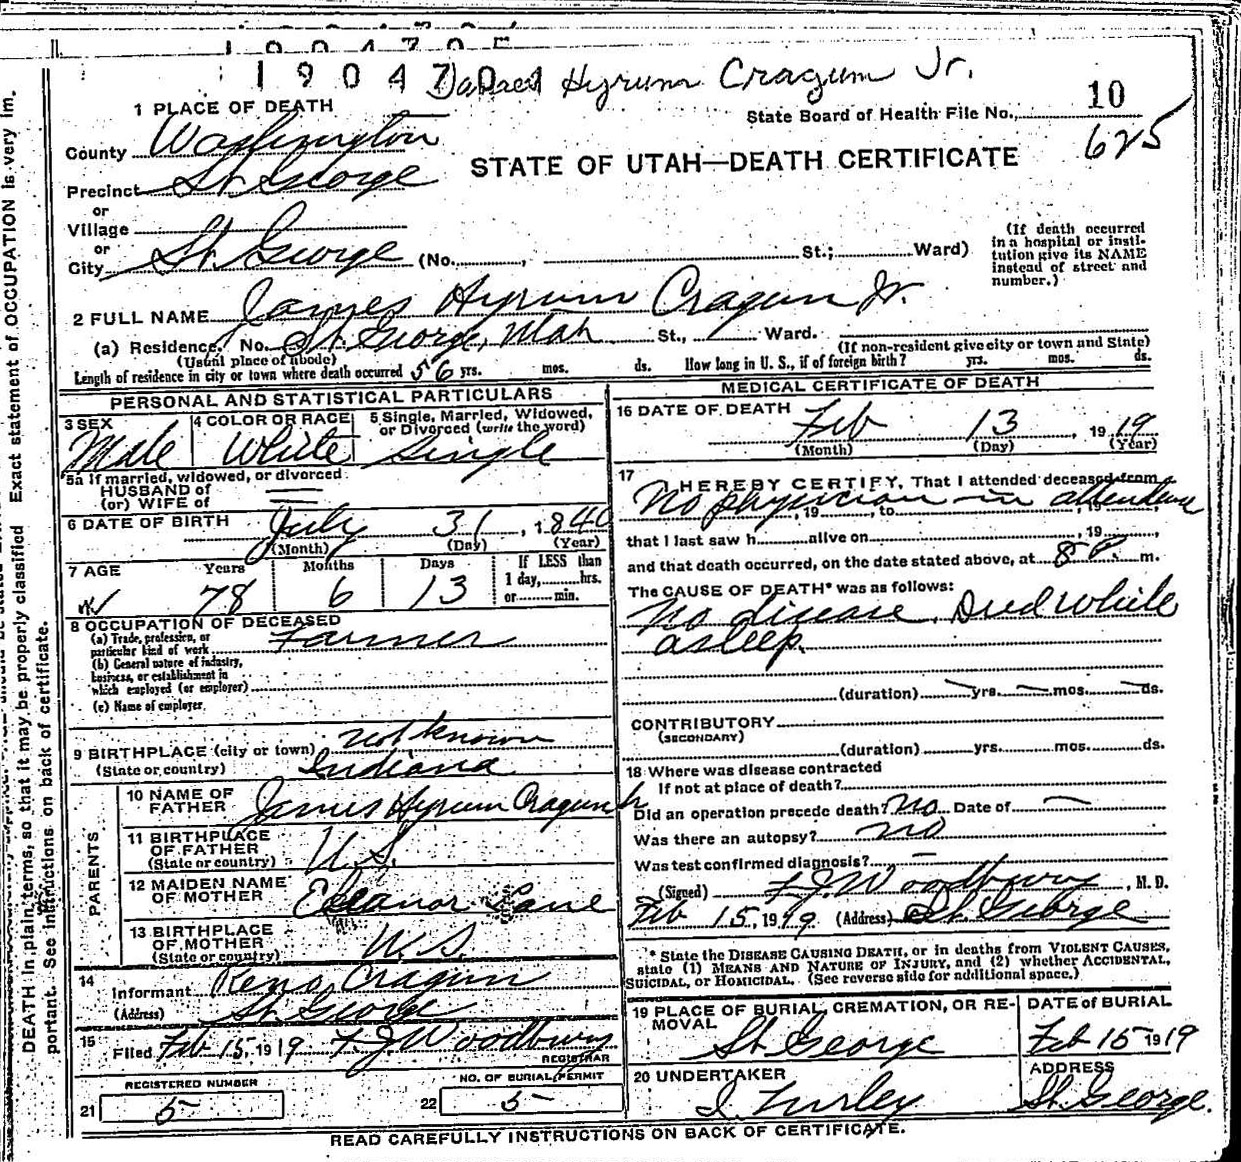 1904705
James Hyrum Cragun Jr.
10
State Board of Health File No.
625
1 PLACE OF DEATH
County Washington
STATE OF UTAH—DEATH CERTIFICATE
Precinct St. George
or
Village
or
City St. George (No. , St.; Ward)
(If death occurred in a hospital or institution give its NAME instead of street and number.)
2 FULL NAME James Hyrum Cragun Jr.
(a) Residence. No. St. George, Utah St., Ward.
(Usual place of abode) (If non-resident give city or town and State)
Length of residence in city or town where death occurred 56 yrs. mos. ds. How long in U. S., if of foreign birth? yrs. mos. ds.
PERSONAL AND STATISTICAL PARTICULARS
3 SEX Male
4 COLOR OR RACE White
5 Single, Married, Widowed, or Divorced (write the word) Single
5a If married, widowed, or divorced
HUSBAND of
(or) WIFE of
6 DATE OF BIRTH July 31, 1840
(Month) (Day) (Year)
7 AGE Years Months Days If LESS than
78 6 13 1 day, hrs.
or min.
8 OCCUPATION OF DECEASED
(a) Trade, profession, or
particular kind of work Farmer
(b) General nature of industry,
business, or establishment in
which employed (or employer)
(c) Name of employer
9 BIRTHPLACE (city or town) not known
(State or country) Indiana
PARENTS
10 NAME OF FATHER James Hyrum Cragun Sr
11 BIRTHPLACE OF FATHER
(State or country) U.S.
12 MAIDEN NAME OF MOTHER Eleanor Lane
13 BIRTHPLACE OF MOTHER
(State or country) U.S.
14 Informant Reno Cragun
(Address) St George
15 Filed Feb 15, 1919 F J Woodbury
REGISTRAR
REGISTERED NUMBER
21 5
NO. OF BURIAL PERMIT
22 5
MEDICAL CERTIFICATE OF DEATH
16 DATE OF DEATH Feb 13, 1919
(Month) (Day) (Year)
17 I HEREBY CERTIFY, That I attended deceased from
No physician in attendance, 19 , to , 19 ,
that I last saw h alive on , 19 ,
and that death occurred, on the date stated above, at 8 P m.
The CAUSE OF DEATH* was as follows:
No disease. Died while
asleep.
(duration) yrs. mos. ds.
CONTRIBUTORY
(SECONDARY)
(duration) yrs. mos. ds.
18 Where was disease contracted
If not at place of death?
Did an operation precede death? No Date of —
Was there an autopsy? no
Was test confirmed diagnosis? —
(Signed) F J Woodbury, M. D.
Feb 15, 1919 (Address) St. George
* State the DISEASE CAUSING DEATH, or in deaths from VIOLENT CAUSES,
state (1) MEANS AND NATURE OF INJURY, and (2) whether ACCIDENTAL,
SUICIDAL, or HOMICIDAL. (See reverse side for additional space.)
19 PLACE OF BURIAL, CREMATION, OR REMOVAL St George
DATE of BURIAL Feb 15 1919
20 UNDERTAKER
ADDRESS St. George.
READ CAREFULLY INSTRUCTIONS ON BACK OF CERTIFICATE.
DEATH in plain terms, so that it may be properly classified Exact statement of OCCUPATION is very im.
portant. See instructions on back of certificate.